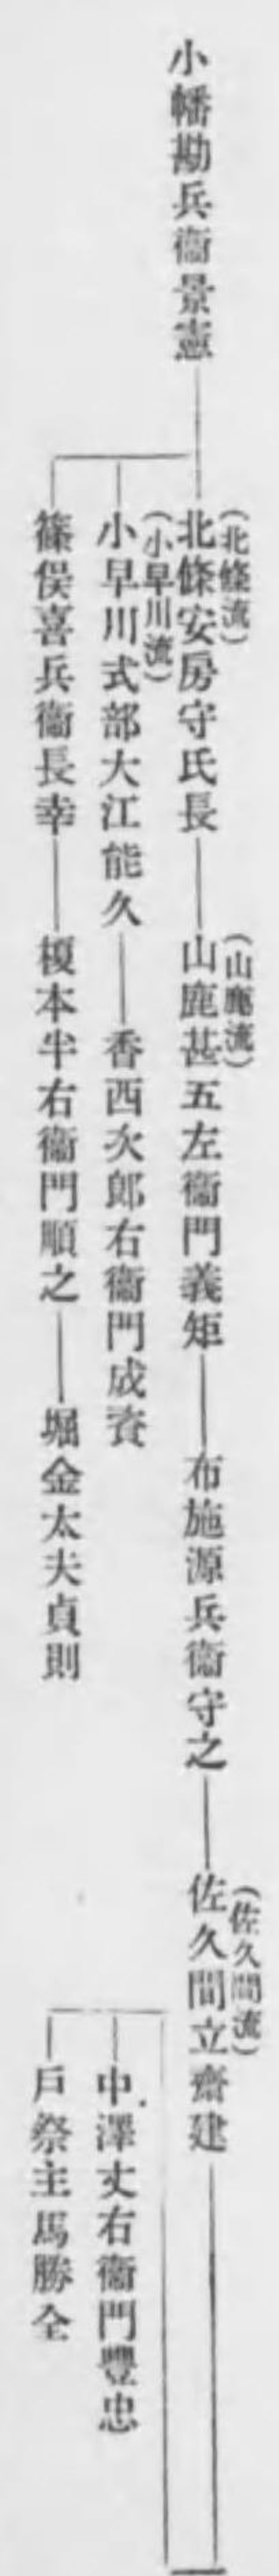 小幡勘兵衞景憲
(北條流)
北條安房守氏長
(山鹿流)
山鹿甚五左衞門義矩
布施源兵衞守之
(佐久間流)
佐久間立齋健
(小早川流)
小早川式部大江能久
香西次郎右衞門成資
篠俣喜兵衞長幸
榎本半右衞門順之
堀金太夫貞則
中澤丈右衞門豐忠
戶祭主馬勝全